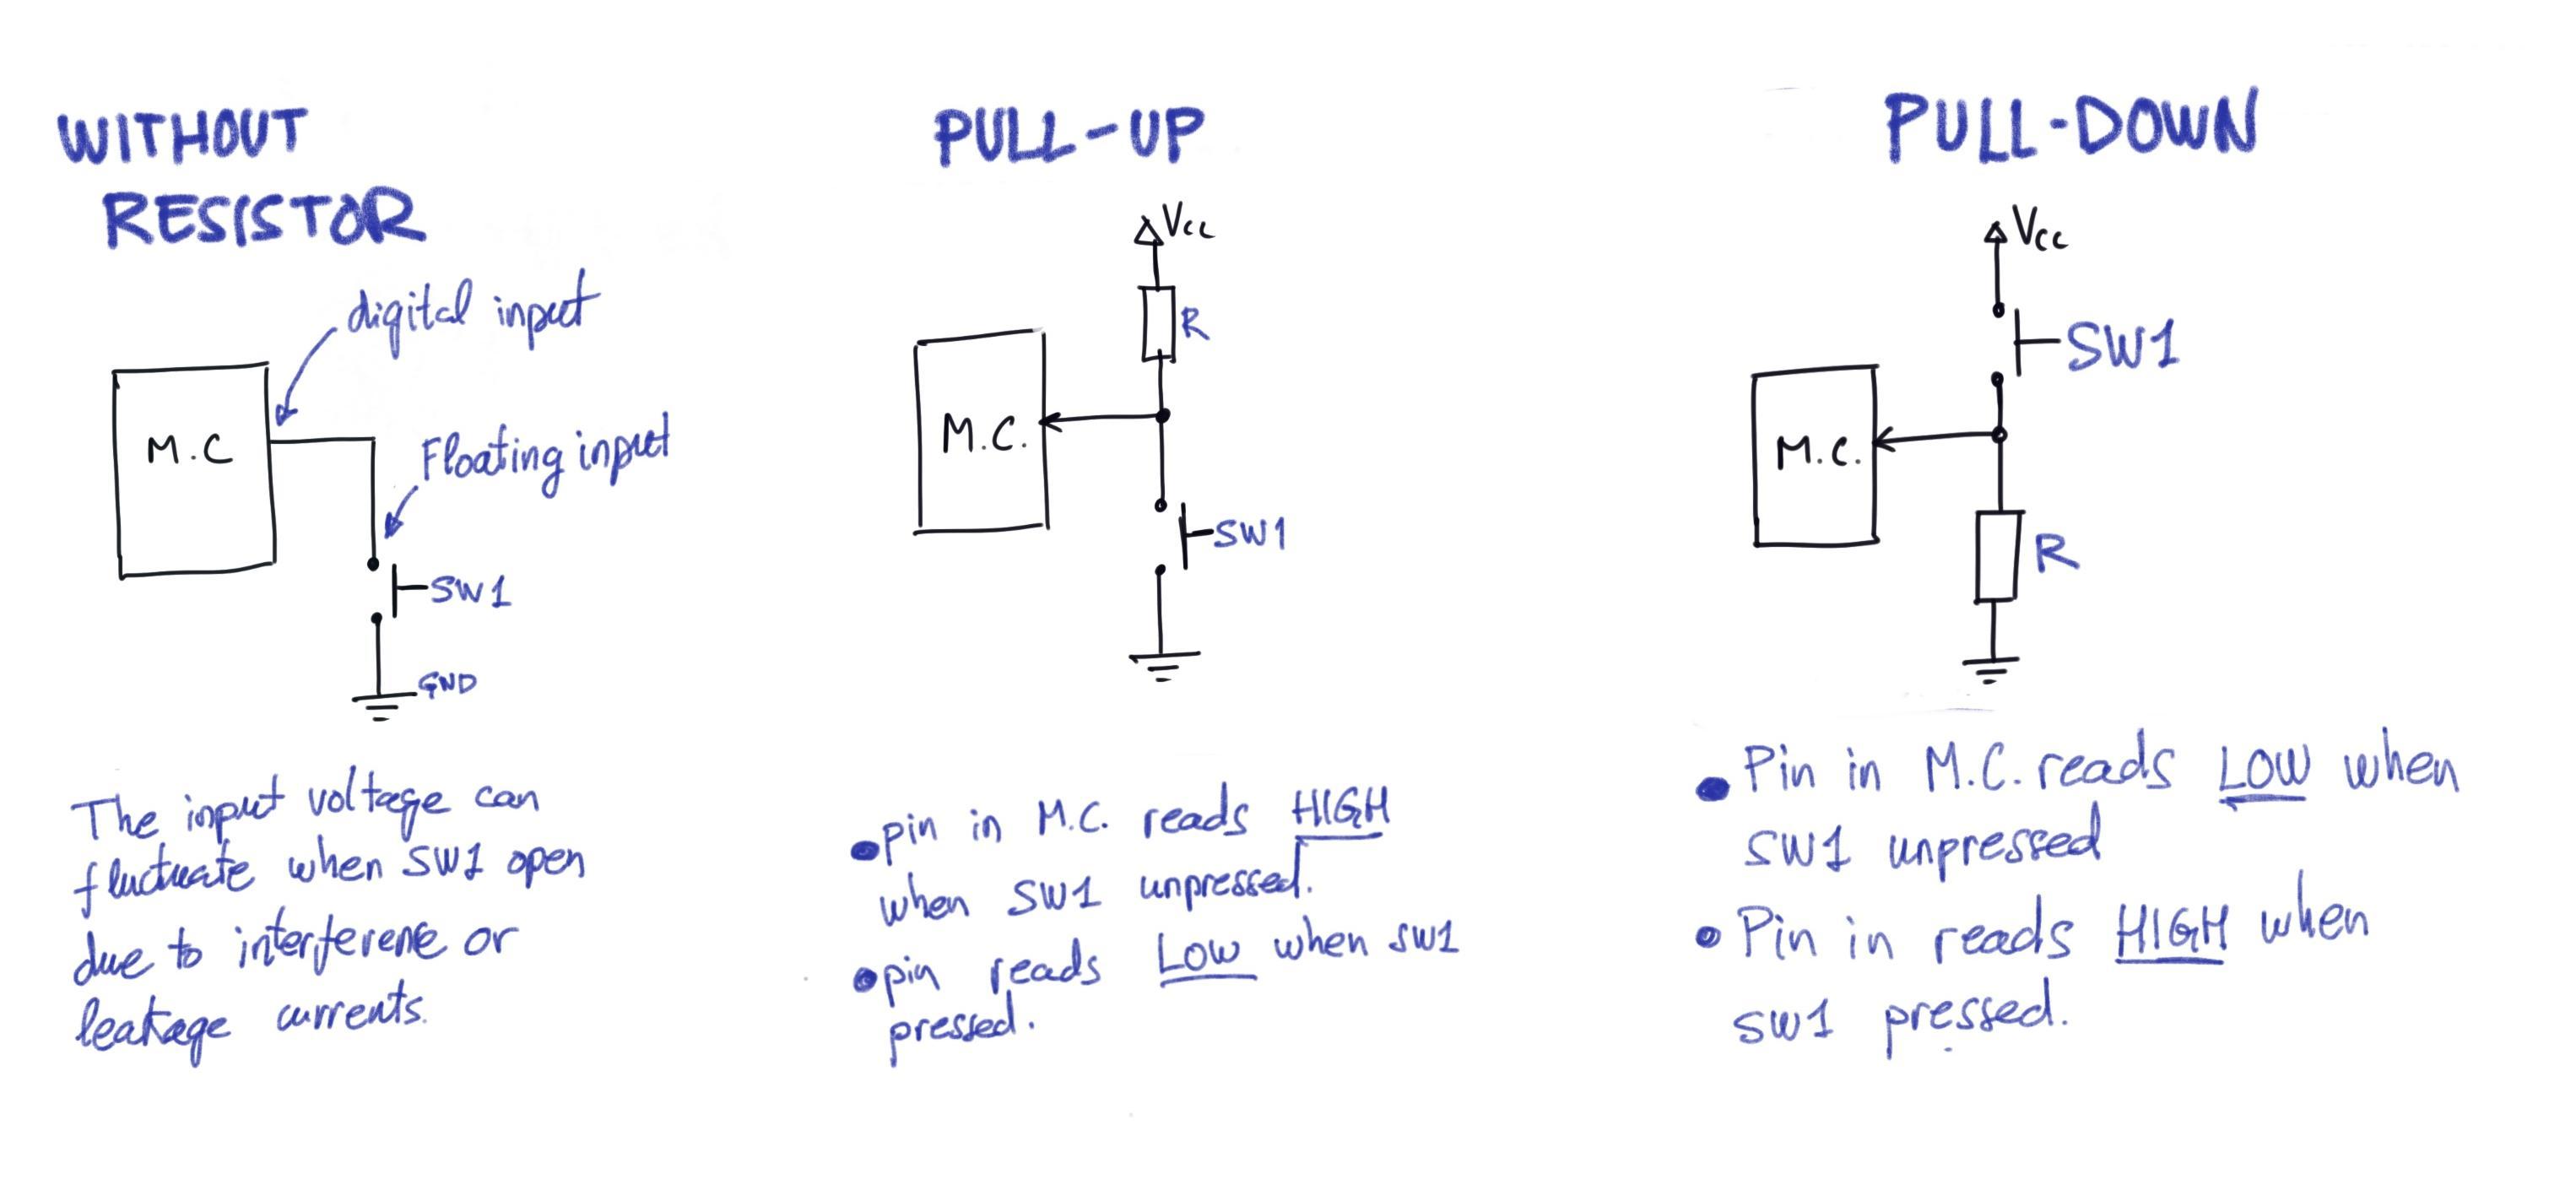 WITHOUT
RESISTOR
digital input
M.C
Floating input
SW1
GND
The input voltage can
fluctuate when SW1 open
due to interference or
leakage currents.
PULL-UP
Vcc
R
M.C.
SW1
• pin in M.C. reads HIGH
when SW1 unpressed.
• pin reads LOW when SW1
pressed.
PULL-DOWN
Vcc
SW1
M.C.
R
• Pin in M.C. reads LOW when
SW1 unpressed
• Pin in reads HIGH when
SW1 pressed.